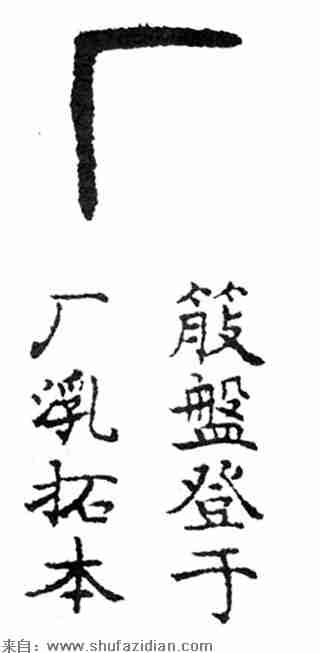 厂
盤登于
厂拓本
来自：www.shufazidian.com